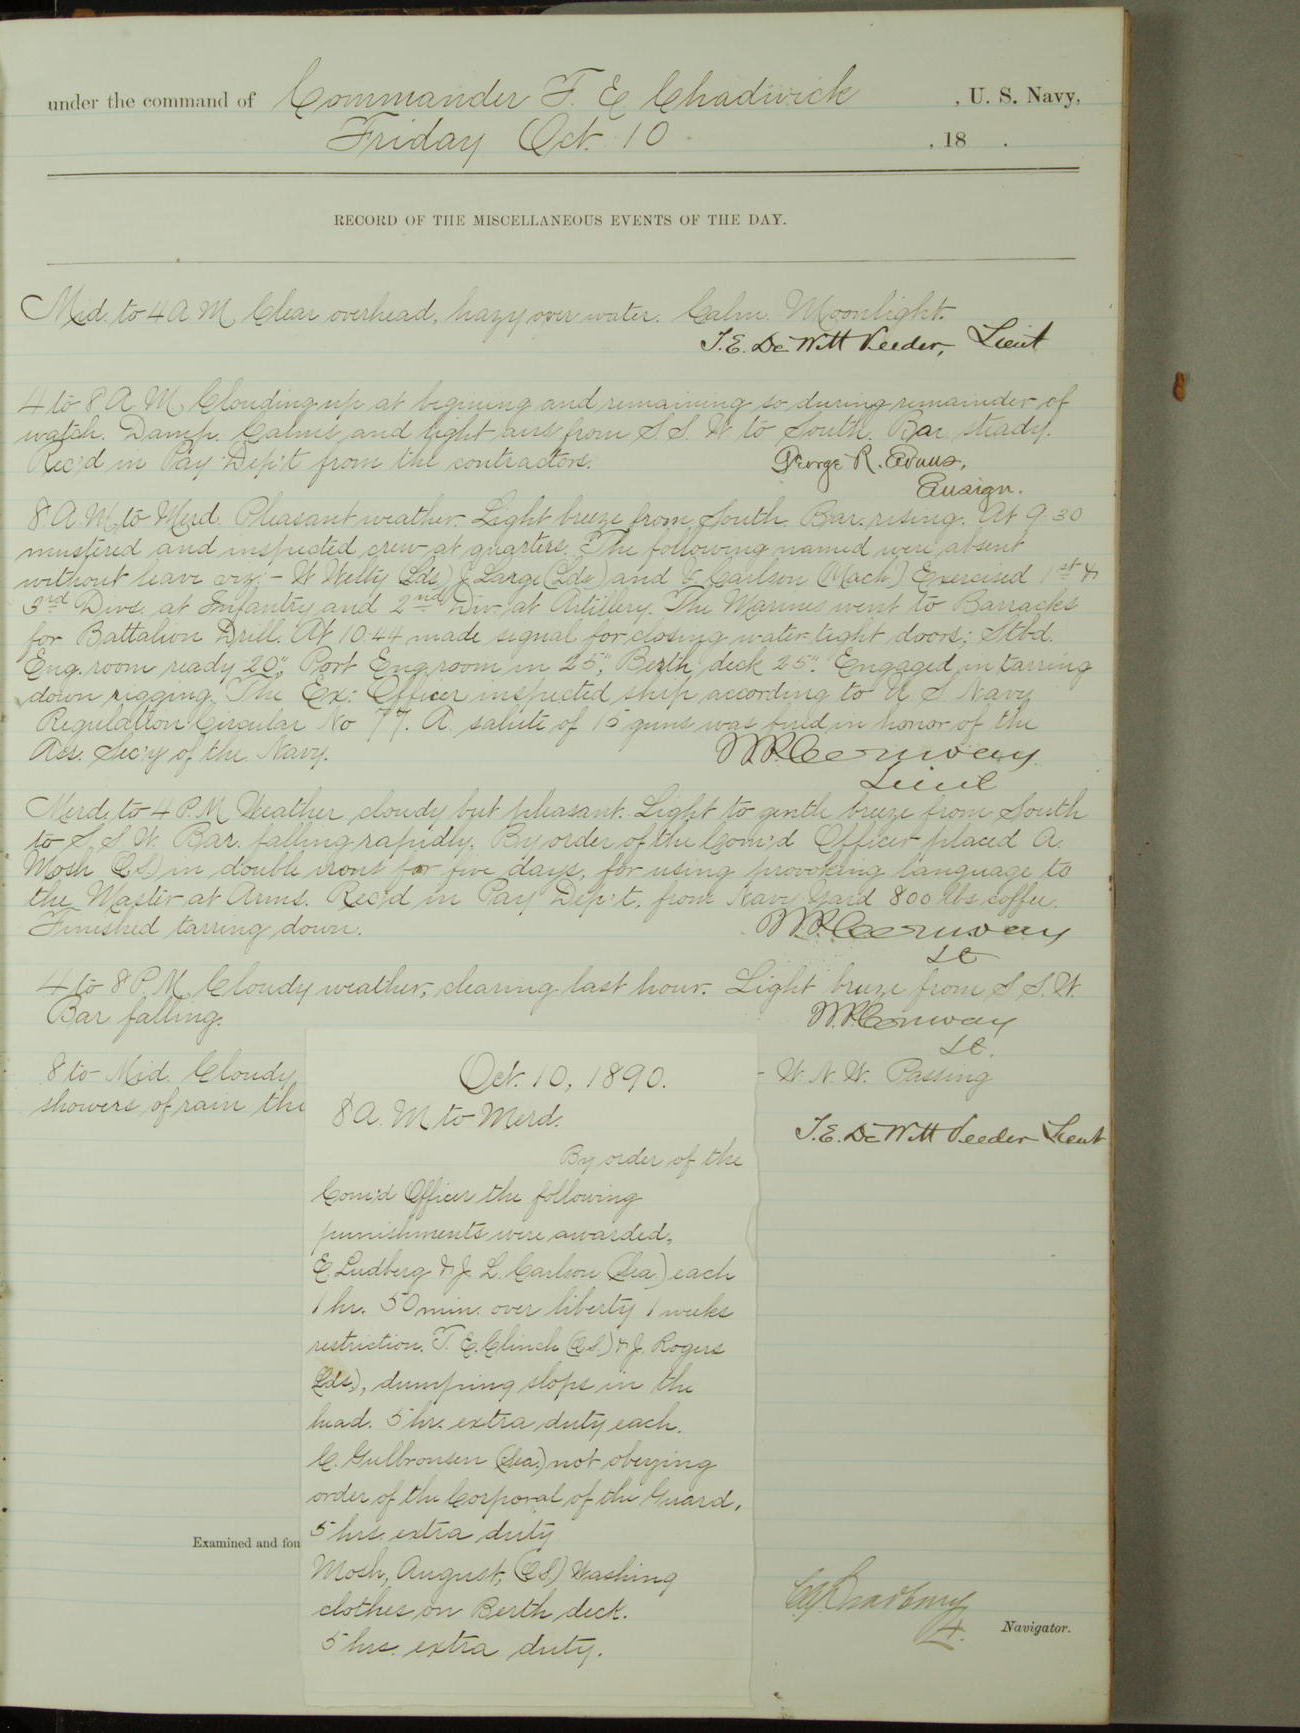 under the command of Commander F. E. Chadwick , U. S. Navy,
Friday Oct. 10 , 18 .
RECORD OF THE MISCELLANEOUS EVENTS OF THE DAY.
Mid. to 4 A M Clear overhead, hazy over water. Calm. Moonlight.
T. E. De Witt Veeder, Lieut
4 to 8 A. M. Clouding up at begining and remaining so during remainder of
watch. Damp. Calms and light airs from S. S. W to South. Bar. steady.
Rec'd in Pay Dep't from the contractors.
George R. Evans,
Ensign.
8 A. M. to Merd. Pleasant weather. Light breeze from South. Bar. rising. At 9.30
mustered and inspected crew at quarters. The following named were absent
without leave viz:- W Welty (Lds) J. Large (Lds) and Carlson (Mach) Exercised 1st &
3rd Divs. at Infantry and 2nd Div at Artillery. The Marines went to Barracks
for Battalion Drill. At 10.44 made signal for closing water tight doors; Stbd.
Eng. room ready 20", Port Eng. room in 25", Berth deck 25". Engaged in tarring
down rigging. The Ex: Officer inspected ship according to U. S. Navy
Regulation Circular No 77. A salute of 15 guns was fired in honor of the
Ass. Sec'y of the Navy.
W. P. Conway
Lieut
Merd. to 4 P. M. Weather cloudy but pleasant. Light to gentle breeze from South
to S. S. W. Bar. falling rapidly. By order of the Com'd Officer placed A.
Mosh (CS) in double irons for five days, for using provoking language to
the Master at Arms. Rec'd in Pay Dep't. from Navy Yard 800 lbs coffee.
Finished tarring down.
W. P. Conway
Lt
4 to 8 P. M. Cloudy weather, clearing last hour. Light breeze from S. S. W.
Bar falling.
W. P. Conway
Lt.
8 to Mid. Cloudy - W. N. W. Passing
showers of rain
T. E. De Witt Veeder Lieut
Oct. 10, 1890.
8 A. M to Merd.
By order of the
Com'd Officer the following
punishments were awarded,
E. Ludberg & J. L. Carlson (Sea) each
1 hr. 50 min. over liberty 1 weeks
restriction. T. E. Clinch (CS) & J. Rogers
(Lds), dumping slops in the
head. 5 hr. extra duty each.
C. Gulbronsen (Sea.) not obeying
order of the Corporal of the Guard,
5 hrs. extra duty
Mosh, August, (CS) Washing
clothes on Berth deck.
5 hrs. extra duty.
Examined and fou
Navigator.